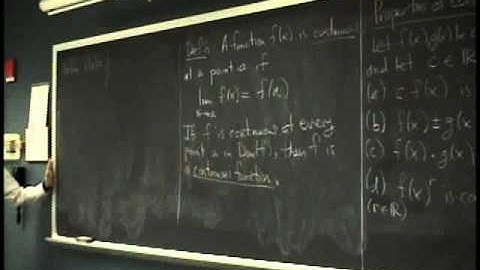 Defn: A function f(x) is continuous
at a point a if
lim f(x) = f(a)
x→a
If f is continuous at every
point a in Dom(f), then f is
a continuous function.
Properties of
Let f(x), g(x) be
and let c ∈ ℝ
(a) c f(x) is
(b) f(x) ± g(x
(c) f(x) · g(x)
(d) f(x)ʳ is co
(r∈ℝ)